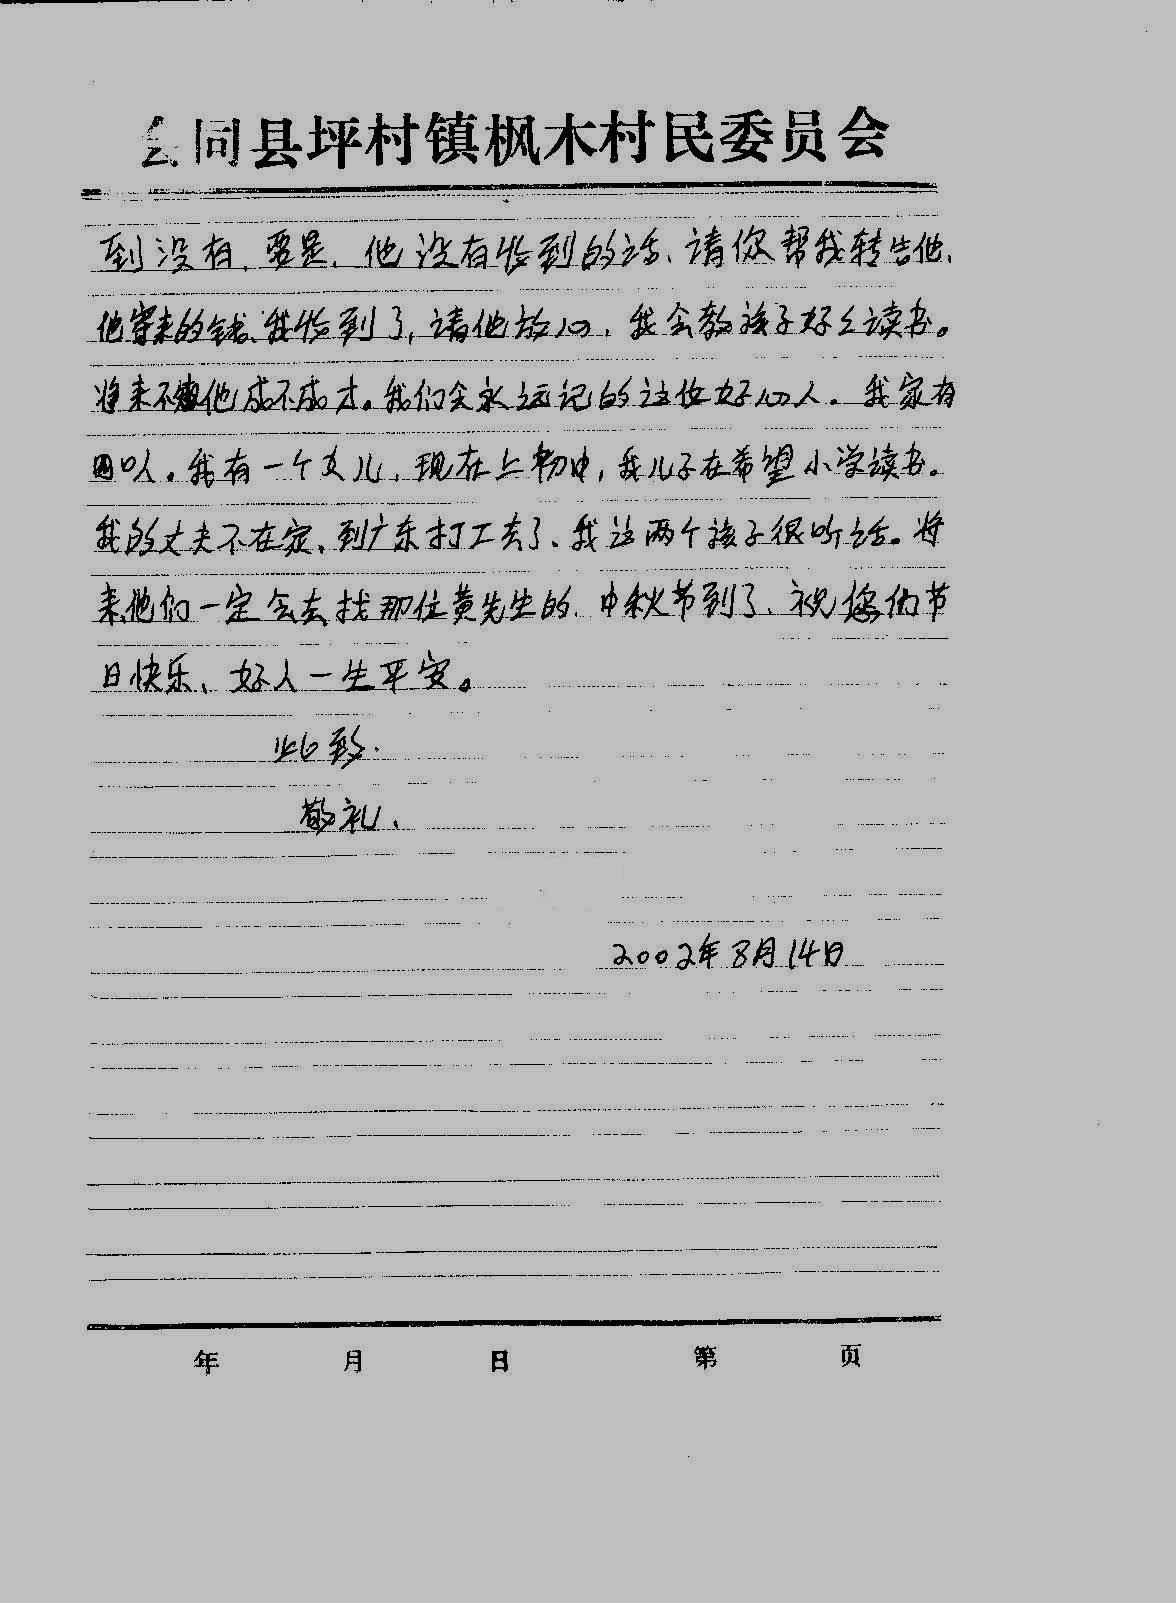 会同县坪村镇枫木村民委员会
到没有、要是、他没有收到的话、请你帮我转告他、
他寄来的钱、我收到了,请他放心、我会教孩子好好读书。
将来不管他成不成才。我们会永远记的这位好心人.我家有
四口人。我有一个女儿、现在上初中,我儿子在希望小学读书。
我的丈夫不在家、到广东打工去了、我这两个孩子很听话。将
来他们一定会去找那位黄先生的、中秋节到了、祝您们节
日快乐、好人一生平安。
此致.
敬礼、
2002年8月14日
年 月 日 第 页